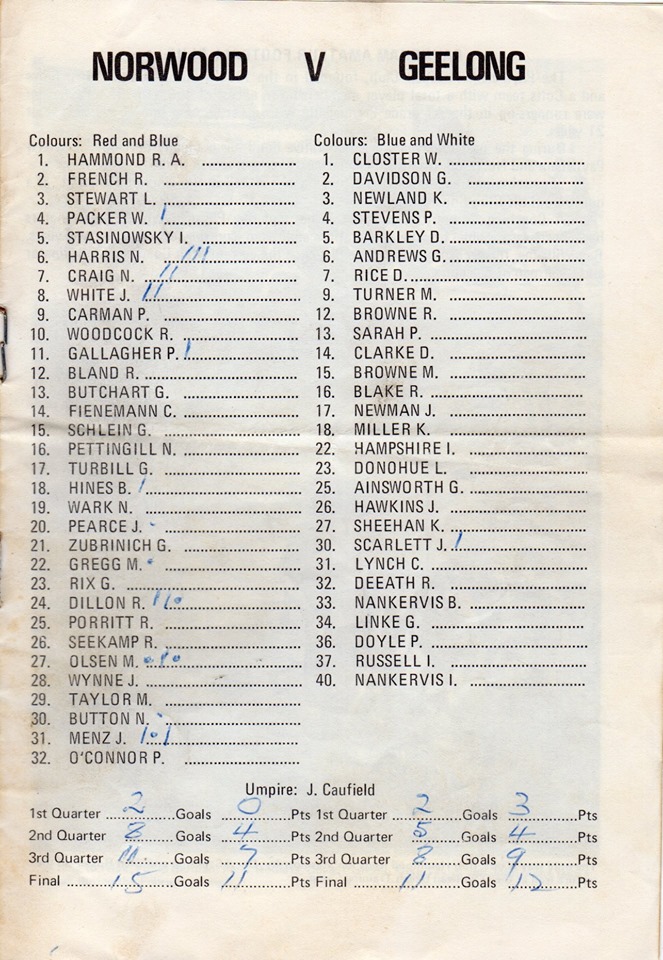 NORWOOD V GEELONG
Colours: Red and Blue
1. HAMMOND R. A.
2. FRENCH R.
3. STEWART L.
4. PACKER W. /
5. STASINOWSKY I.
6. HARRIS N. ///
7. CRAIG N. //
8. WHITE J. //
9. CARMAN P.
10. WOODCOCK R.
11. GALLAGHER P. /
12. BLAND R.
13. BUTCHART G.
14. FIENEMANN C.
15. SCHLEIN G.
16. PETTINGILL N.
17. TURBILL G.
18. HINES B. /
19. WARK N.
20. PEARCE J.
21. ZUBRINICH G.
22. GREGG M.
23. RIX G.
24. DILLON R.
25. PORRITT R.
26. SEEKAMP R.
27. OLSEN M.
28. WYNNE J.
29. TAYLOR M.
30. BUTTON N.
31. MENZ J.
32. O'CONNOR P.
Colours: Blue and White
1. CLOSTER W.
2. DAVIDSON G.
3. NEWLAND K.
4. STEVENS P.
5. BARKLEY D.
6. ANDREWS G.
7. RICE D.
9. TURNER M.
12. BROWNE R.
13. SARAH P.
14. CLARKE D.
15. BROWNE M.
16. BLAKE R.
17. NEWMAN J.
18. MILLER K.
22. HAMPSHIRE I.
23. DONOHUE L.
25. AINSWORTH G.
26. HAWKINS J.
27. SHEEHAN K.
30. SCARLETT J. /
31. LYNCH C.
32. DEEATH R.
33. NANKERVIS B.
34. LINKE G.
36. DOYLE P.
37. RUSSELL I.
40. NANKERVIS I.
Umpire: J. Caufield
1st Quarter 2 Goals 0 Pts 1st Quarter 2 Goals 3 Pts
2nd Quarter 8 Goals 4 Pts 2nd Quarter 5 Goals 4 Pts
3rd Quarter 11 Goals 7 Pts 3rd Quarter 8 Goals 9 Pts
Final 15 Goals 11 Pts Final 11 Goals 12 Pts